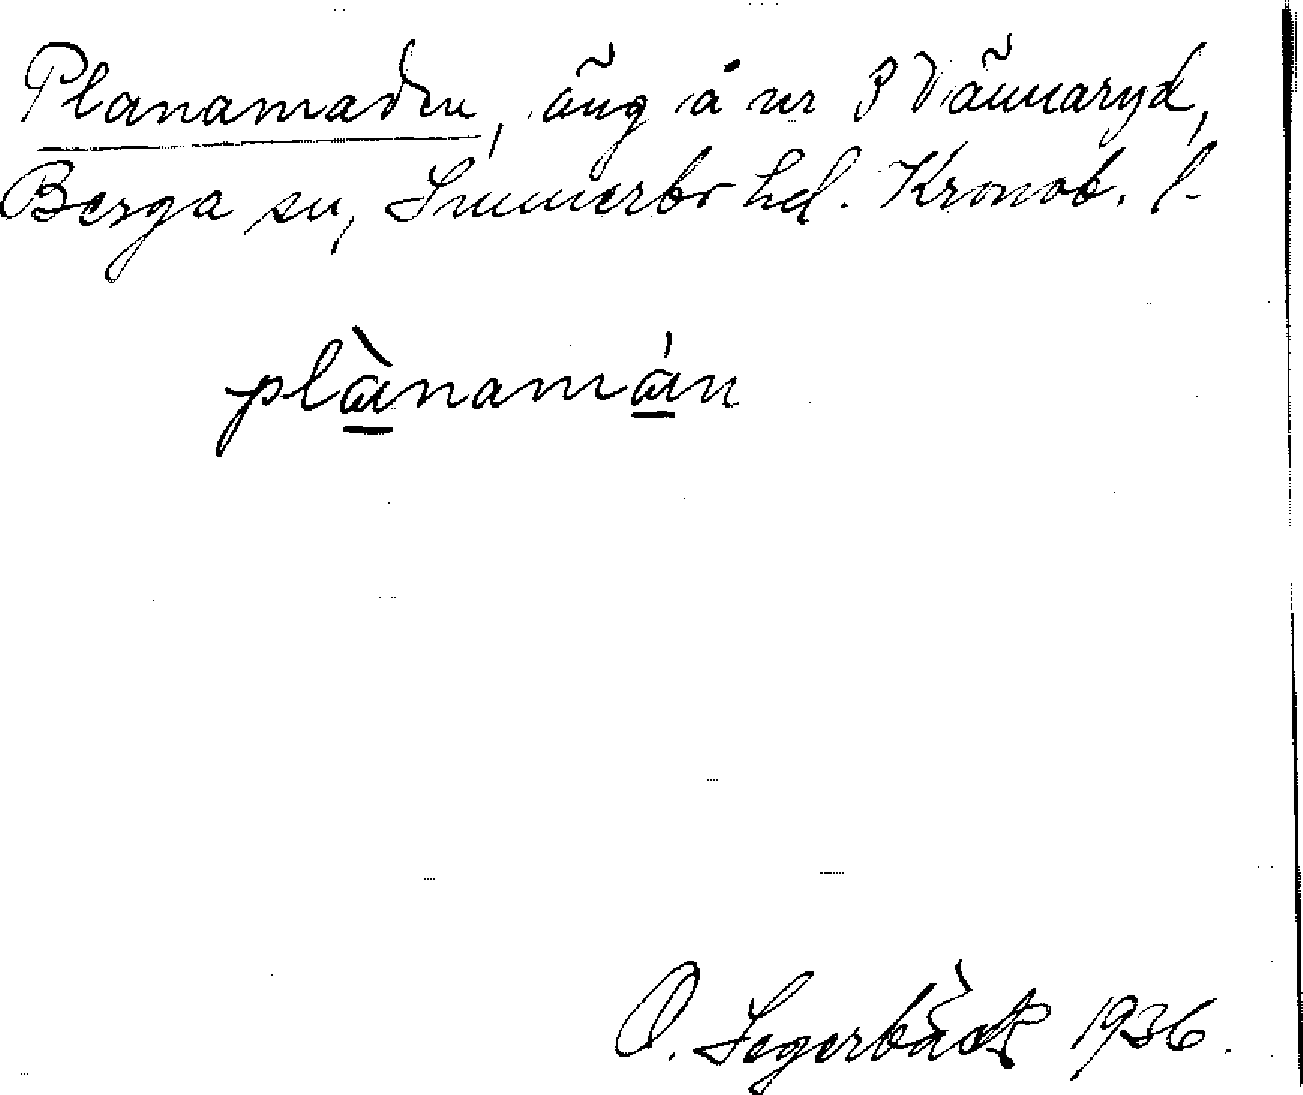 Planamaden, äng å nr 3 Vännaryd,
Berga sn, Sunnerbo hd. Kronob. l.
plànamán
O. Segerbäck 1936.